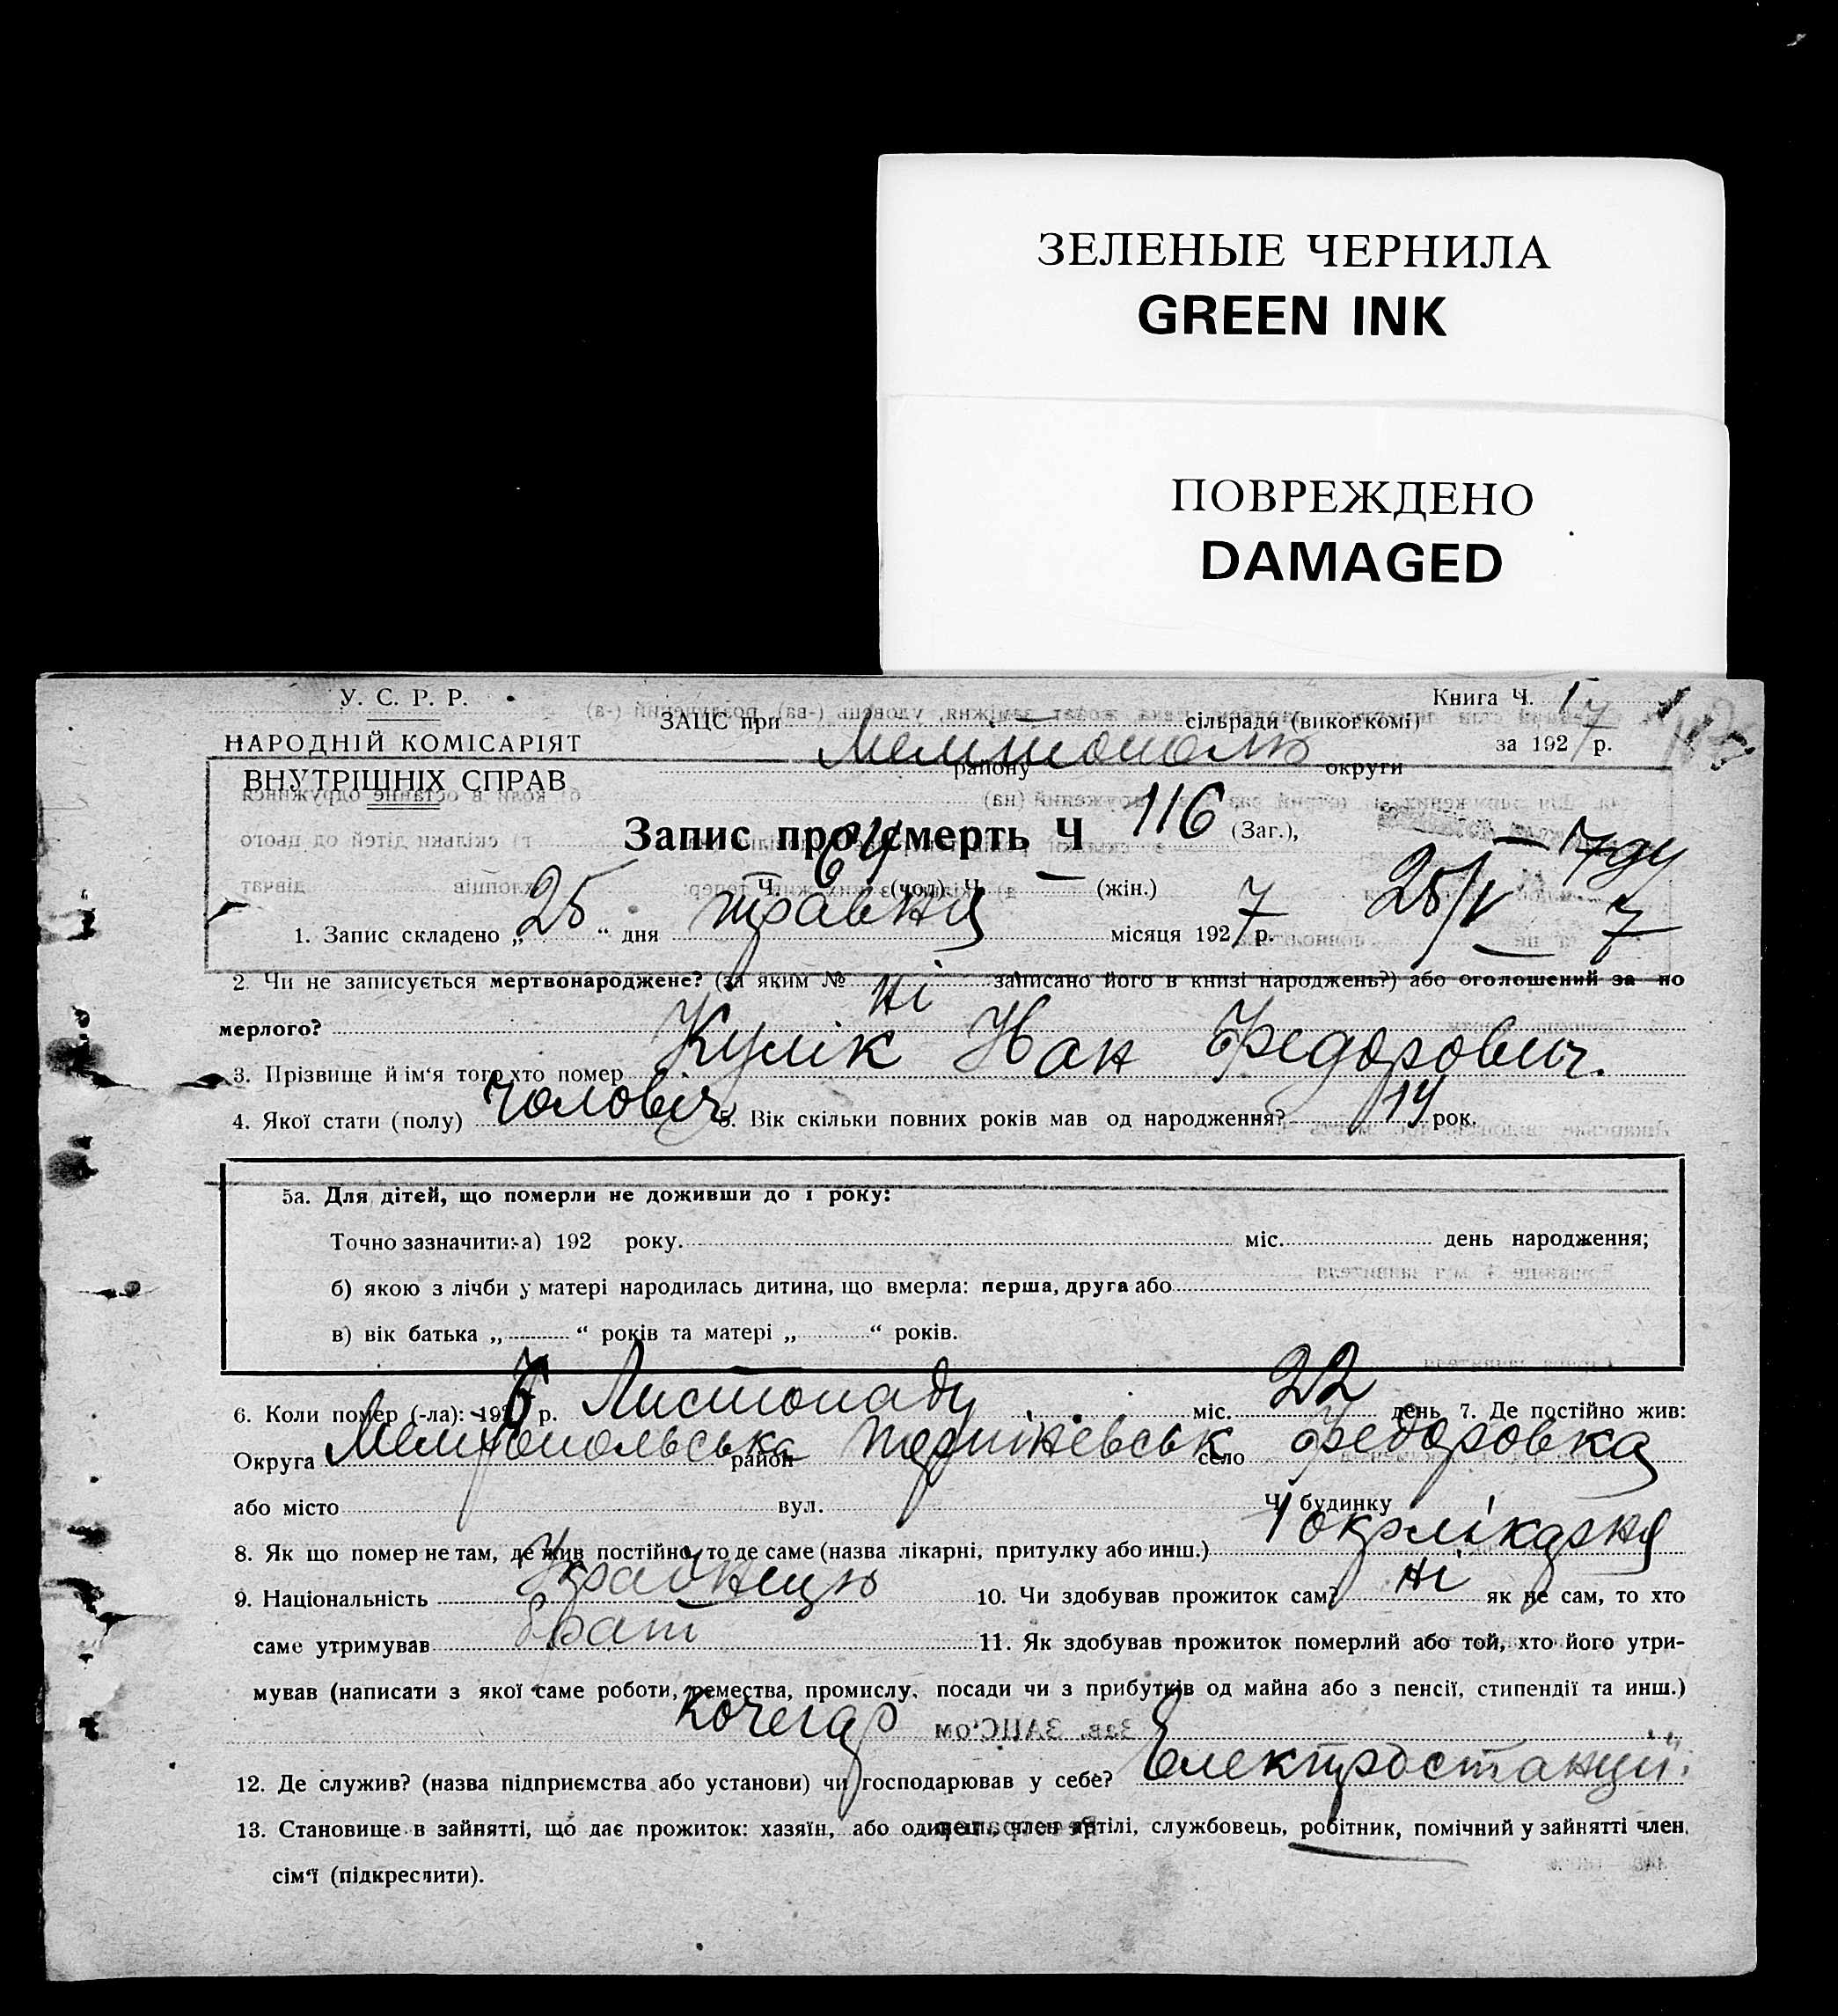 ЗЕЛЕНЫЕ ЧЕРНИЛА
GREEN INK
ПОВРЕЖДЕНО
DAMAGED
У. С. Р. Р.
НАРОДНІЙ КОМІСАРІЯТ
ВНУТРІШНІХ СПРАВ
Книга Ч. 1
за 1927 р.
ЗАЦС при сільради (виконкомі)
Мелітополь
району округи
Запис про смерть Ч 116 (Заг.),
Ч. 64 (чол) Ч — (жін.)
1. Запис складено „25“ дня травня місяця 1927 р.
25/V 7
2. Чи не записується мертвонароджене? (за яким № ні записано його в книзі народжень?) або оголошений за по
мерлого?
3. Прізвище й ім‘я того хто помер Кулік Іван Федорович.
4. Якої стати (полу) чоловіч 5. Вік скільки повних років мав од народження? 14 рок.
5а. Для дітей, що померли не доживши до 1 року:
Точно зазначити: а) 192 року. міс. день народження;
б) якою з лічби у матері народилась дитина, що вмерла: перша, друга або
в) вік батька „ “ років та матері „ “ років.
6. Коли помер (-ла): 1926 р. Листопаду міс. 22 день 7. Де постійно жив:
Округа Мелітопольська район село Федоровка
або місто вул. Ч. будинку
8. Як що помер не там, де жив постійно, то де саме (назва лікарні, притулку або инш.) 1 окрлікарня
9. Національність Українець 10. Чи здобував прожиток сам? ні як не сам, то хто
саме утримував брат 11. Як здобував прожиток померлий або той, хто його утри-
мував (написати з якої саме роботи, ремества, промислу, посади чи з прибутків од майна або з пенсії, стипендії та инш.)
Кочегар
12. Де служив? (назва підприємства або установи) чи господарював у себе? Електростанції
13. Становище в зайнятті, що дає прожиток: хазяїн, або одинець, член артілі, службовець, робітник, помічний у зайнятті член
сім‘ї (підкреслити).